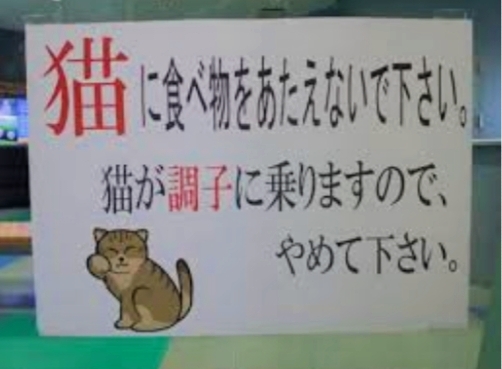 猫に食べ物をあたえないで下さい。
猫が調子に乗りますので、
やめて下さい。